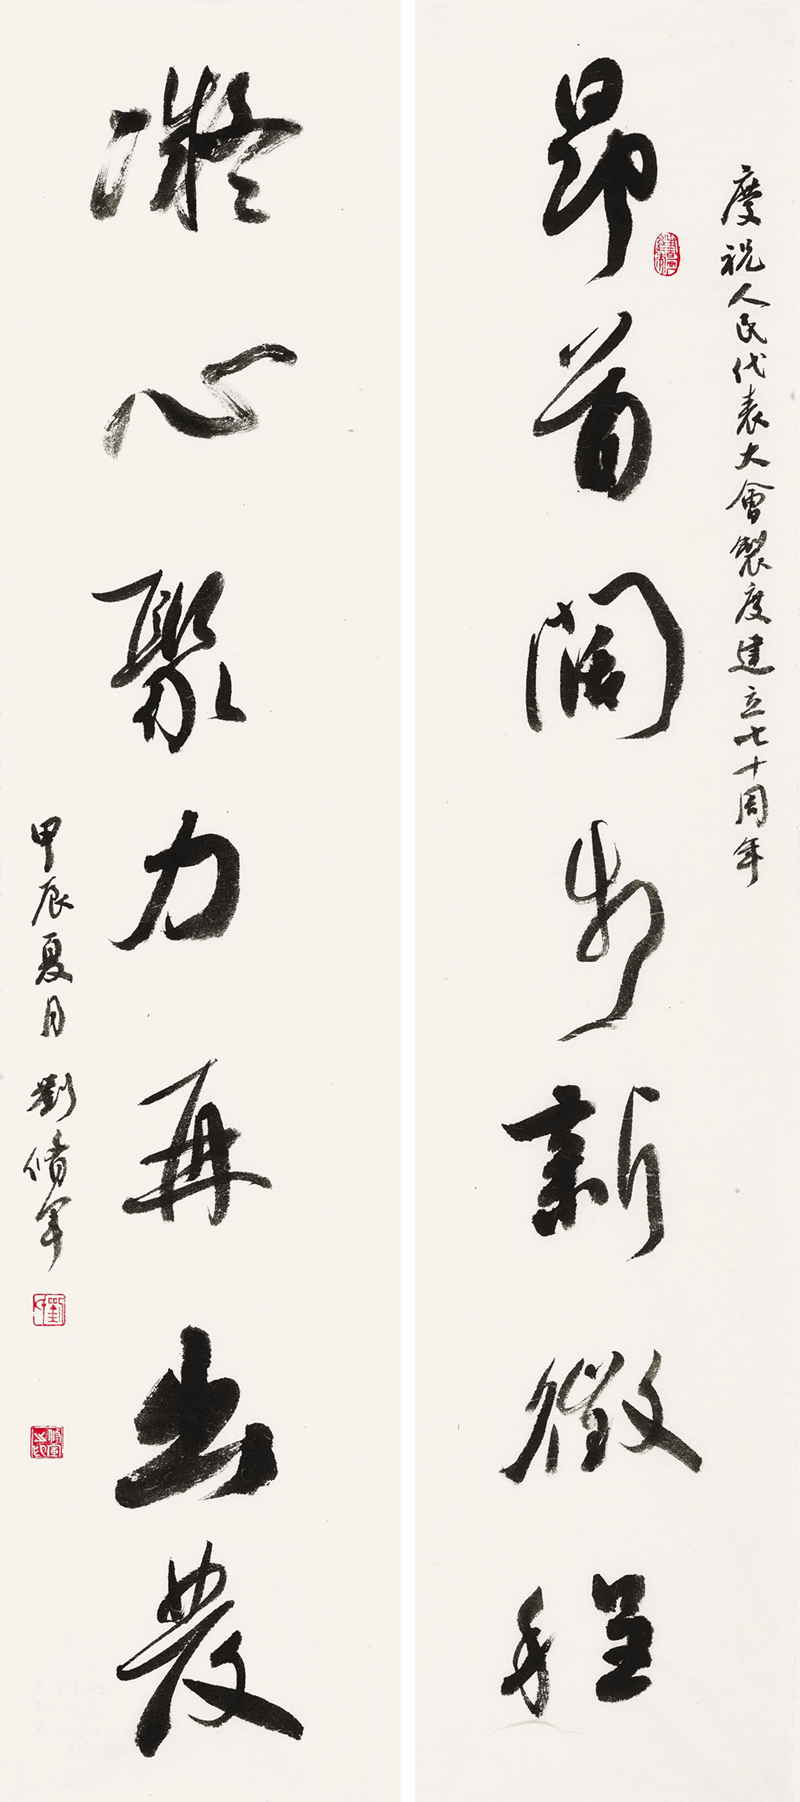 慶祝人民代表大會製度建立七十周年
昂首闊步新徵程
凝心聚力再出發
甲辰夏月 劉脩軍